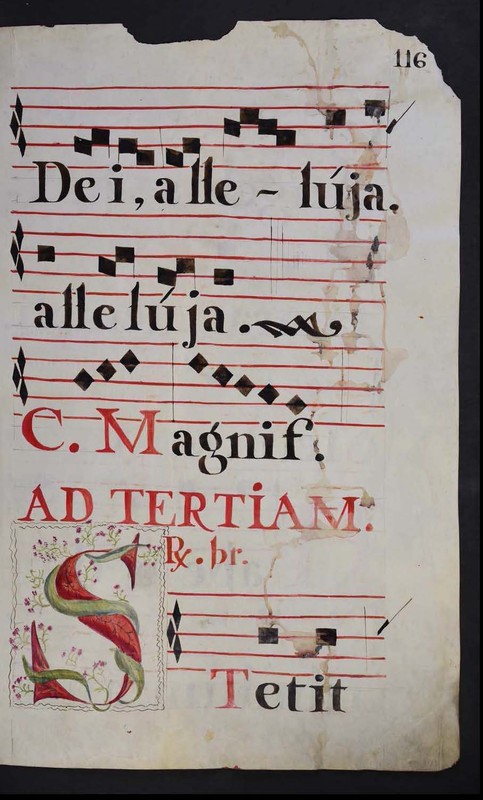 116
Dei, alle - lúja.
allelúja.
C. Magnif.
AD TERTIAM.
℞. br.
S
Tetit